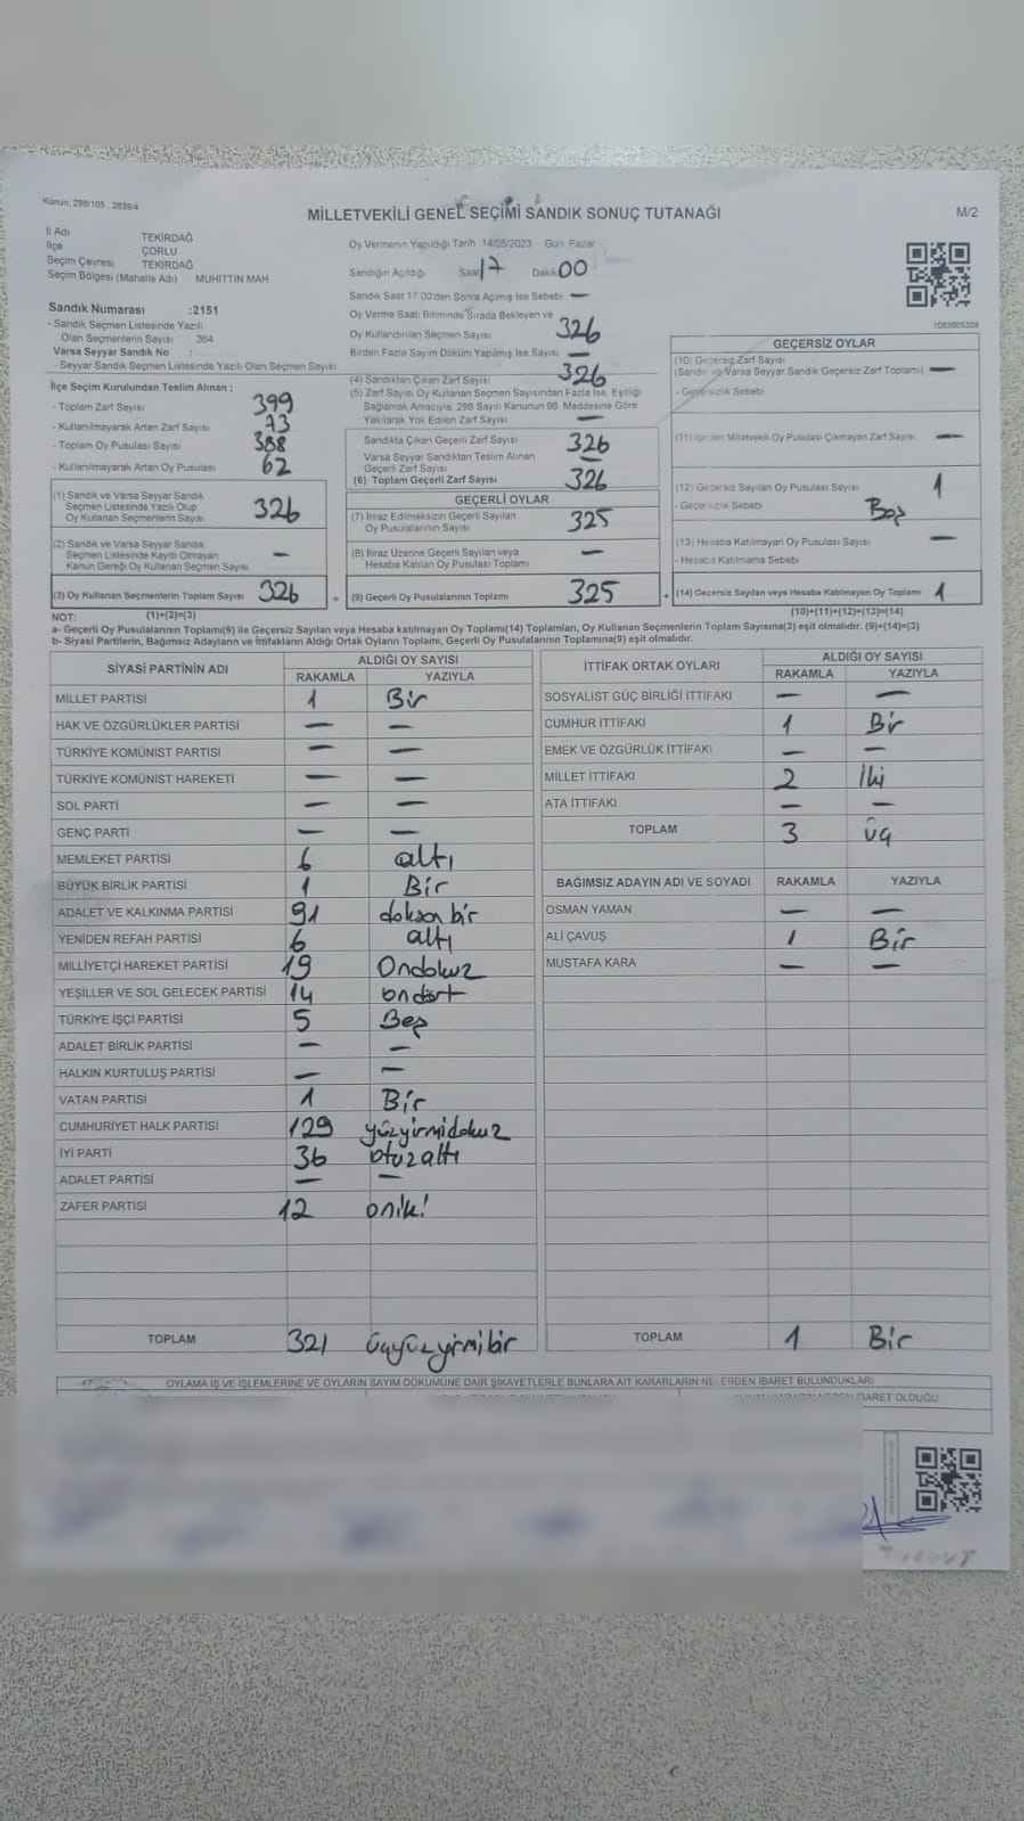 Kanun, 298/105 , 2839/4
MİLLETVEKİLİ GENEL SEÇİMİ SANDIK SONUÇ TUTANAĞI
M/2
İl Adı TEKİRDAĞ
İlçe ÇORLU
Seçim Çevresi TEKİRDAĞ
Seçim Bölgesi (Mahalle Adı) MUHİTTİN MAH
Sandık Numarası :2151
- Sandık Seçmen Listesinde Yazılı
Olan Seçmenlerin Sayısı 364
Varsa Seyyar Sandık No :
- Seyyar Sandık Seçmen Listesinde Yazılı Olan Seçmen Sayısı
İlçe Seçim Kurulundan Teslim Alınan ;
- Toplam Zarf Sayısı 399
- Kullanılmayarak Artan Zarf Sayısı 73
- Toplam Oy Pusulası Sayısı 388
- Kullanılmayarak Artan Oy Pusulası 62
(1) Sandık ve Varsa Seyyar Sandık
Seçmen Listesinde Yazılı Olup
Oy Kullanan Seçmenlerin Sayısı 326
(2) Sandık ve Varsa Seyyar Sandık
Seçmen Listesinde Kayıtlı Olmayan
Kanun Gereği Oy Kullanan Seçmen Sayısı —
(3) Oy Kullanan Seçmenlerin Toplam Sayısı 326
Oy Vermenin Yapıldığı Tarih 14/05/2023 - Gün: Pazar
Sandığın Açıldığı Saat 17 Dakika 00
Sandık Saat 17:00'den Sonra Açılmış İse Sebebi —
Oy Verme Saati Bitiminde Sırada Bekleyen ve
Oy Kullandırılan Seçmen Sayısı 326
Birden Fazla Sayım Döküm Yapılmış İse Sayısı —
(4) Sandıktan Çıkan Zarf Sayısı 326
(5) Zarf Sayısı Oy Kullanan Seçmen Sayısından Fazla İse, Eşitliği
Sağlamak Amacıyla, 298 Sayılı Kanunun 98. Maddesine Göre
Yakılarak Yok Edilen Zarf Sayısı —
Sandıkta Çıkan Geçerli Zarf Sayısı 326
Varsa Seyyar Sandıktan Teslim Alınan
Geçerli Zarf Sayısı —
(6) Toplam Geçerli Zarf Sayısı 326
GEÇERLİ OYLAR
(7) İtiraz Edilmeksizin Geçerli Sayılan
Oy Pusulalarının Sayısı 325
(8) İtiraz Üzerine Geçerli Sayılan veya
Hesaba Katılan Oy Pusulası Toplamı —
+ (9) Geçerli Oy Pusulalarının Toplamı 325
GEÇERSİZ OYLAR
(10) Geçersiz Zarf Sayısı
(Sandık ve Varsa Seyyar Sandık Geçersiz Zarf Toplamı) —
- Geçersizlik Sebebi
Milletvekili Oy Pusulası Çıkmayan Zarf Sayısı —
(12) Geçersiz Sayılan Oy Pusulası Sayısı 1
- Geçersizlik Sebebi Boş
(13) Hesaba Katılmayan Oy Pusulası Sayısı —
- Hesaba Katılmama Sebebi
+ (14) Geçersiz Sayılan veya Hesaba Katılmayan Oy Toplamı 1
NOT: (1)+(2)=(3) (10)+(11)+(12)+(13)=(14)
a- Geçerli Oy Pusulalarının Toplamı(9) ile Geçersiz Sayılan veya Hesaba katılmayan Oy Toplamı(14) Toplamları, Oy Kullanan Seçmenlerin Toplam Sayısına(3) eşit olmalıdır. (9)+(14)=(3)
b- Siyasi Partilerin, Bağımsız Adayların ve İttifakların Aldığı Ortak Oyların Toplamı, Geçerli Oy Pusulalarının Toplamına(9) eşit olmalıdır.
SİYASİ PARTİNİN ADI ALDIĞI OY SAYISI
RAKAMLA YAZIYLA
MİLLET PARTİSİ 1 Bir
HAK VE ÖZGÜRLÜKLER PARTİSİ — —
TÜRKİYE KOMÜNİST PARTİSİ — —
TÜRKİYE KOMÜNİST HAREKETİ — —
SOL PARTİ — —
GENÇ PARTİ — —
MEMLEKET PARTİSİ 6 altı
BÜYÜK BİRLİK PARTİSİ 1 Bir
ADALET VE KALKINMA PARTİSİ 91 doksan bir
YENİDEN REFAH PARTİSİ 6 altı
MİLLİYETÇİ HAREKET PARTİSİ 19 Ondokuz
YEŞİLLER VE SOL GELECEK PARTİSİ 14 ondört
TÜRKİYE İŞÇİ PARTİSİ 5 Beş
ADALET BİRLİK PARTİSİ — —
HALKIN KURTULUŞ PARTİSİ — —
VATAN PARTİSİ 1 Bir
CUMHURİYET HALK PARTİSİ 129 yüzyirmidokuz
İYİ PARTİ 36 otuzaltı
ADALET PARTİSİ — —
ZAFER PARTİSİ 12 oniki
TOPLAM 321 üçyüzyirmibir
İTTİFAK ORTAK OYLARI ALDIĞI OY SAYISI
RAKAMLA YAZIYLA
SOSYALİST GÜÇ BİRLİĞİ İTTİFAKI — —
CUMHUR İTTİFAKI 1 Bir
EMEK VE ÖZGÜRLÜK İTTİFAKI — —
MİLLET İTTİFAKI 2 İki
ATA İTTİFAKI — —
TOPLAM 3 üç
BAĞIMSIZ ADAYIN ADI VE SOYADI RAKAMLA YAZIYLA
OSMAN YAMAN — —
ALİ ÇAVUŞ 1 Bir
MUSTAFA KARA — —
TOPLAM 1 Bir
OYLAMA İŞ VE İŞLEMLERİNE VE OYLARIN SAYIM DÖKÜMÜNE DAİR ŞİKAYETLERLE BUNLARA AİT KARARLARIN NELERDEN İBARET BULUNDUKLARI
İBARET OLDUĞU